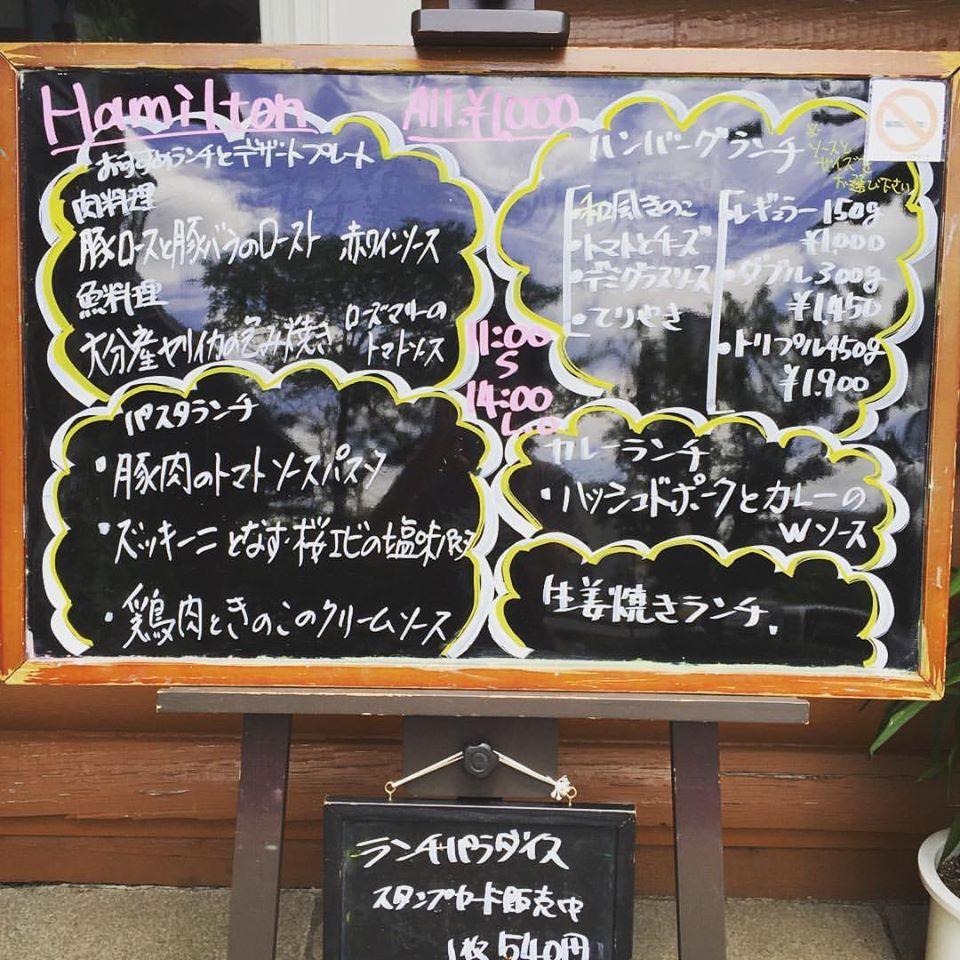 Hamilton
All ¥1,000
おすすめランチとデザートプレート
肉料理
豚ロースと豚バラのロースト 赤ワインソース
魚料理
大分産ヤリイカの包み焼き ローズマリーの
トマトソース
パスタランチ
・豚肉のトマトソースパスタ
・ズッキーニとなす・桜エビの塩味
・鶏肉ときのこのクリームソース
11:00
14:00
L.O
ハンバーグランチ
※ソースと
サイズを
お選び下さい
・和風きのこ
・トマトとチーズ
・デミグラスソース
・てりやき
・レギュラー 150g
¥1,000
・ダブル 300g
¥1,450
・トリプル 450g
¥1,900
カレーランチ
・ハッシュドポークとカレーの
Wソース
生姜焼きランチ
ランチパラダイス
スタンプカード販売中
1枚 540円